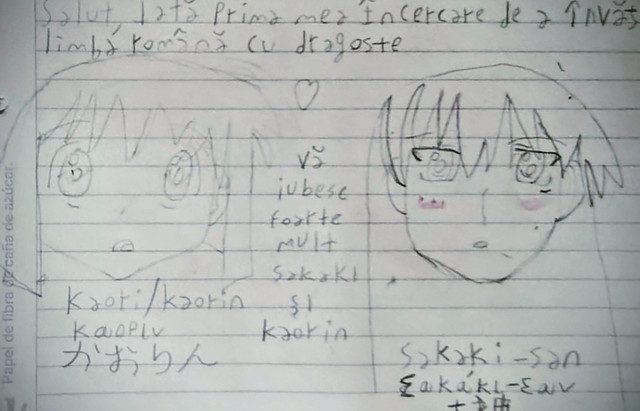 Salut, Iată prima mea Încercare de a Învăț
limbá română cu dragoste
vă
iubesc
foarte
mult
sakaki
și
kaorin
Kaori/kaorin
καοριν
かおりん
Sakaki-san
Σακάκι-σαν
Papel de fibra de caña de azúcar.